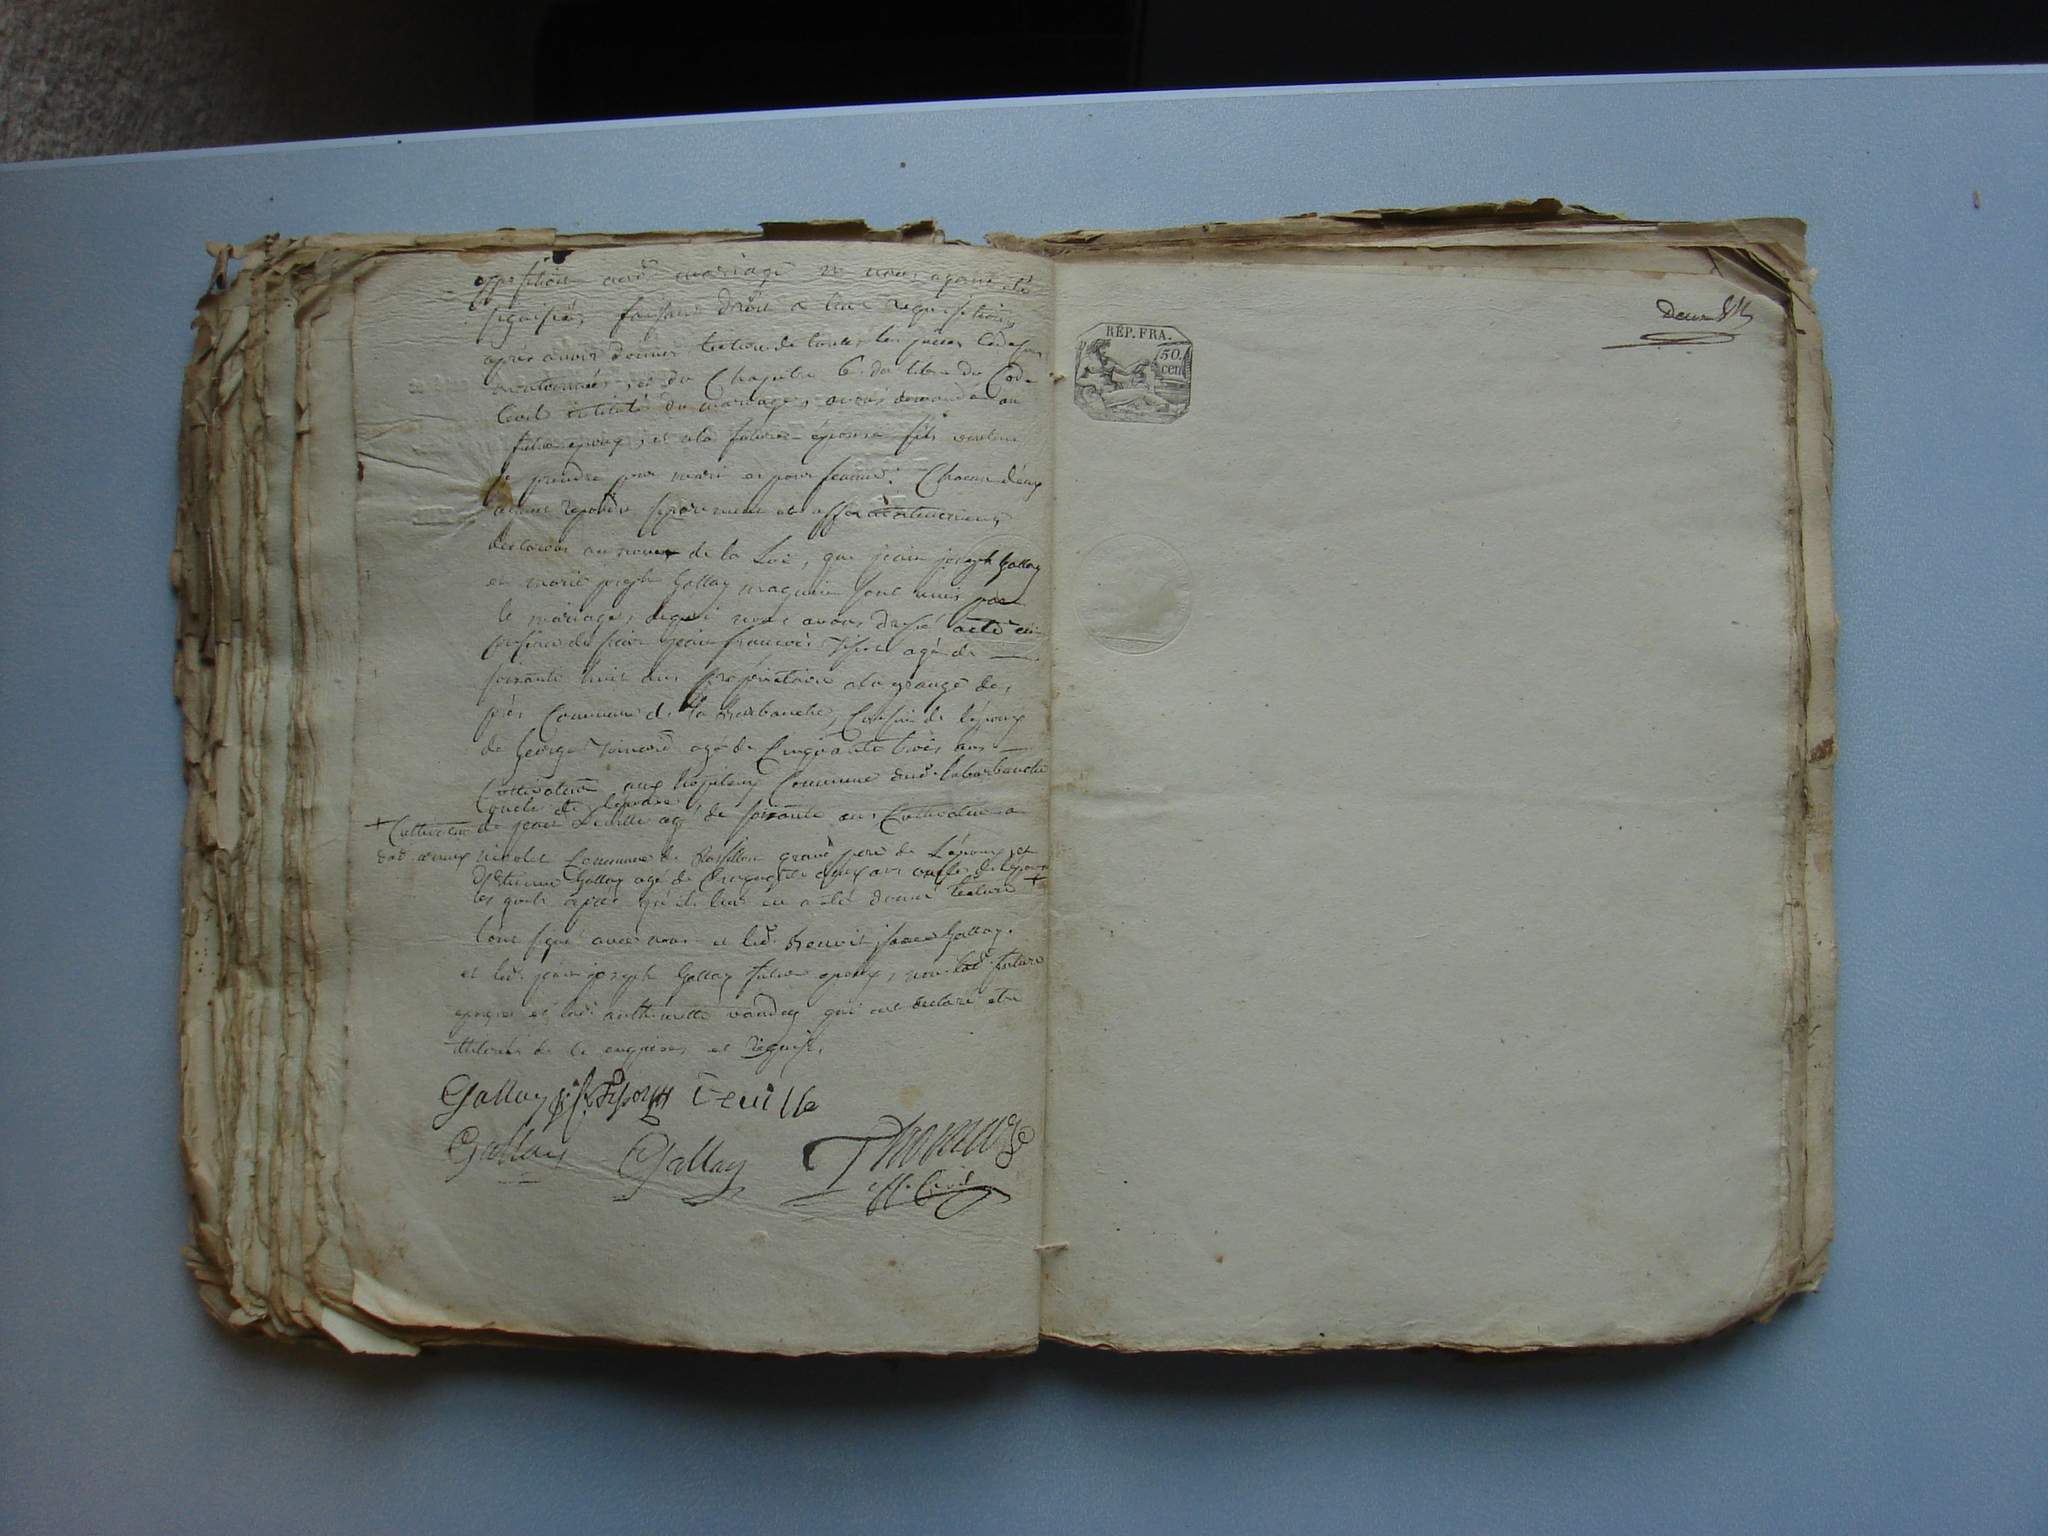 opposition aud.t mariage ne nous ayant été
signifiée, faisant droit a leur requisition,
après avoir donner lecture de toutes les pièces ci dessus
mentionnées, et du Chapitre 6 du titre du Code
Civil intitulé du mariage, avons demandé au
futur epoux, et ala future épouse s'ils veulent
se prendre pour mari et pour femme. Chacun d'eux
ayant repondu séparément et affirmativement
declarons au nom de la Loi, que jean joseph Gallay
et marie joseph Gallay maguin sont unis par
le mariage, dequoi nous avons dressé acte en
présence du sieur jean francois agé de
soixante huit ans propriétaire a la grange des
près Commune de la Burbanche, Cousin de l'époux
de George agé de Cinquante trois ans
Cultivateur aux hopitaux Commune dud.t laburbanche
oncle de l'épouse
+ Cultivateur de jean agé de soixante ans Cultivateur a
nicolet Commune de Rossillon grand pere de L'époux, et
D'Etienne Gallay agé de Cinquante ans oncle de l'époux +
les quels après qu'il leur en a été donné lecture
l'ont signé avec nous et led.t Benoit Gallay.
et led.t jean joseph Gallay futur epoux, non lad.te future
epouse et lad.te anthelmette vanday qui ont declaré etre
illiterées de ce enquises et requises.
Gallay
Gallay Gallay Thomas
off. Civil
RÉP. FRA.
50.
cen